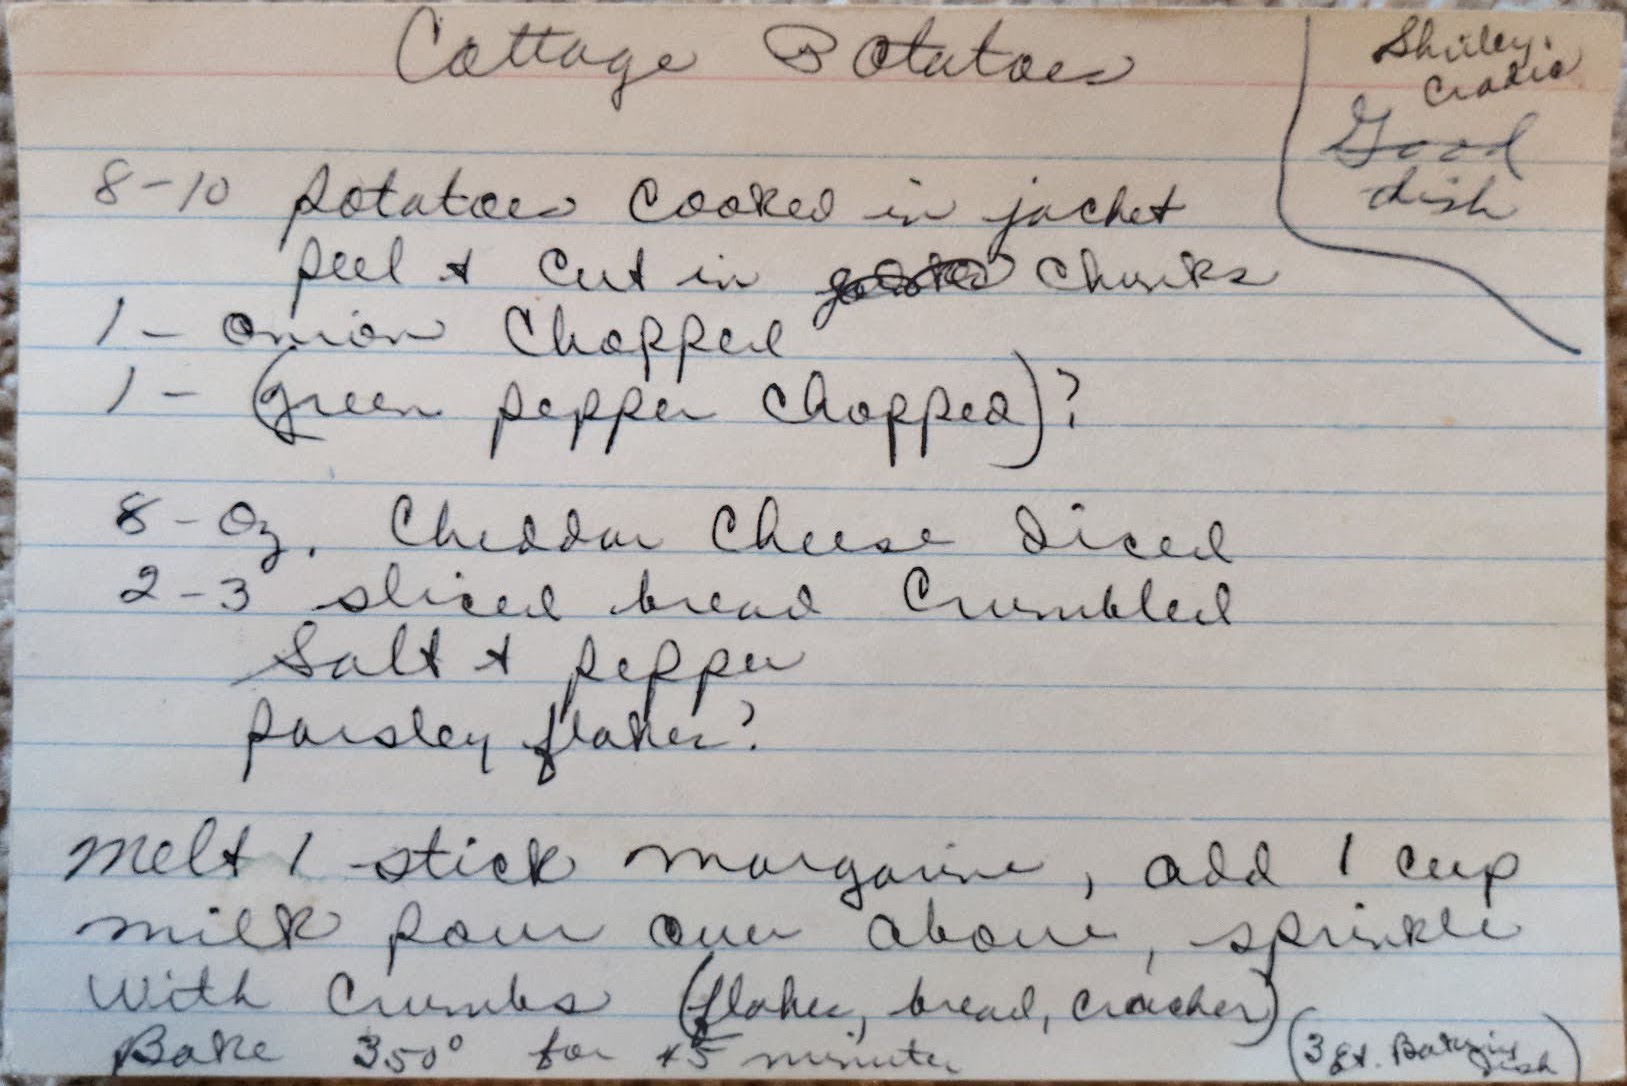 Cottage Potatoes
Shirley
Good
dish
8-10 potatoes cooked in jacket
peel & cut in chunks
1 - onion chopped
1 - (green pepper chopped)?
8 - oz. Cheddar Cheese diced
2-3 sliced bread crumbled
Salt & pepper
parsley flakes?
Melt 1 stick margarine, add 1 cup
milk pour over above, sprinkle
with crumbs (flakes, bread, cracker)
Bake 350° for 45 minutes
(3 qt. Baking dish)